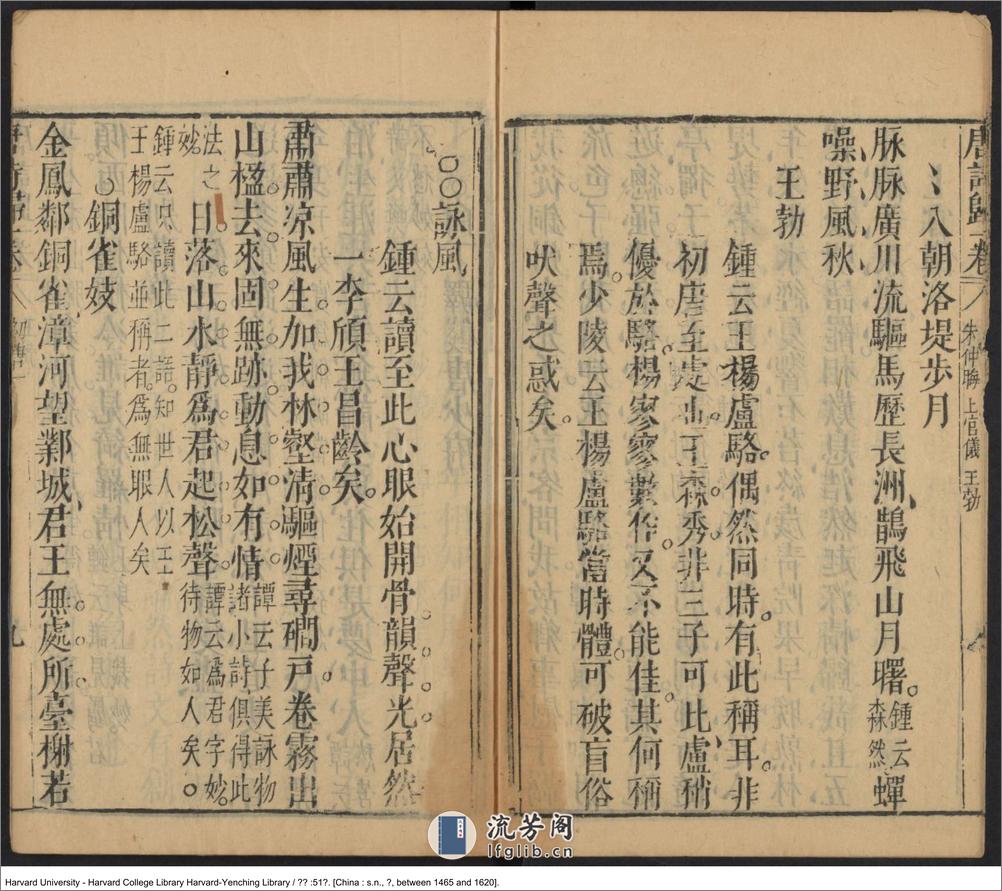 唐詩歸一卷 八 朱仲晦 上官儀 王勃
入朝洛堤步月
脉脉廣川流驅馬歷長洲鵲飛山月曙鍾云森然蟬
噪野風秋
王勃
鍾云王楊盧駱偶然同時有此稱耳非
初唐至處也王森秀非三子可比盧稍
優於駱楊寥寥數作又不能佳其何稱
焉少陵云王楊盧駱當時體可破盲俗
吠聲之惑矣
○○詠風
鍾云讀至此心眼始開骨韻聲光居然
一李頎王昌齡矣
肅肅凉風生加我林壑清驅煙尋磵戶卷霧出
山楹去來固無跡動息如有情譚云子美詠物諸小詩俱得此
法之妙日落山水靜爲君起松聲譚云爲君字妙待物如人矣○
鍾云只讀此二語知世人以王
楊盧駱並稱者爲無眼人矣
○銅雀妓
金鳳鄰銅雀漳河望鄴城君王無處所臺榭若
九
流芳阁
lfglib.cn
Harvard University - Harvard College Library Harvard-Yenching Library / ?? :51?. [China : s.n., ?, between 1465 and 1620].